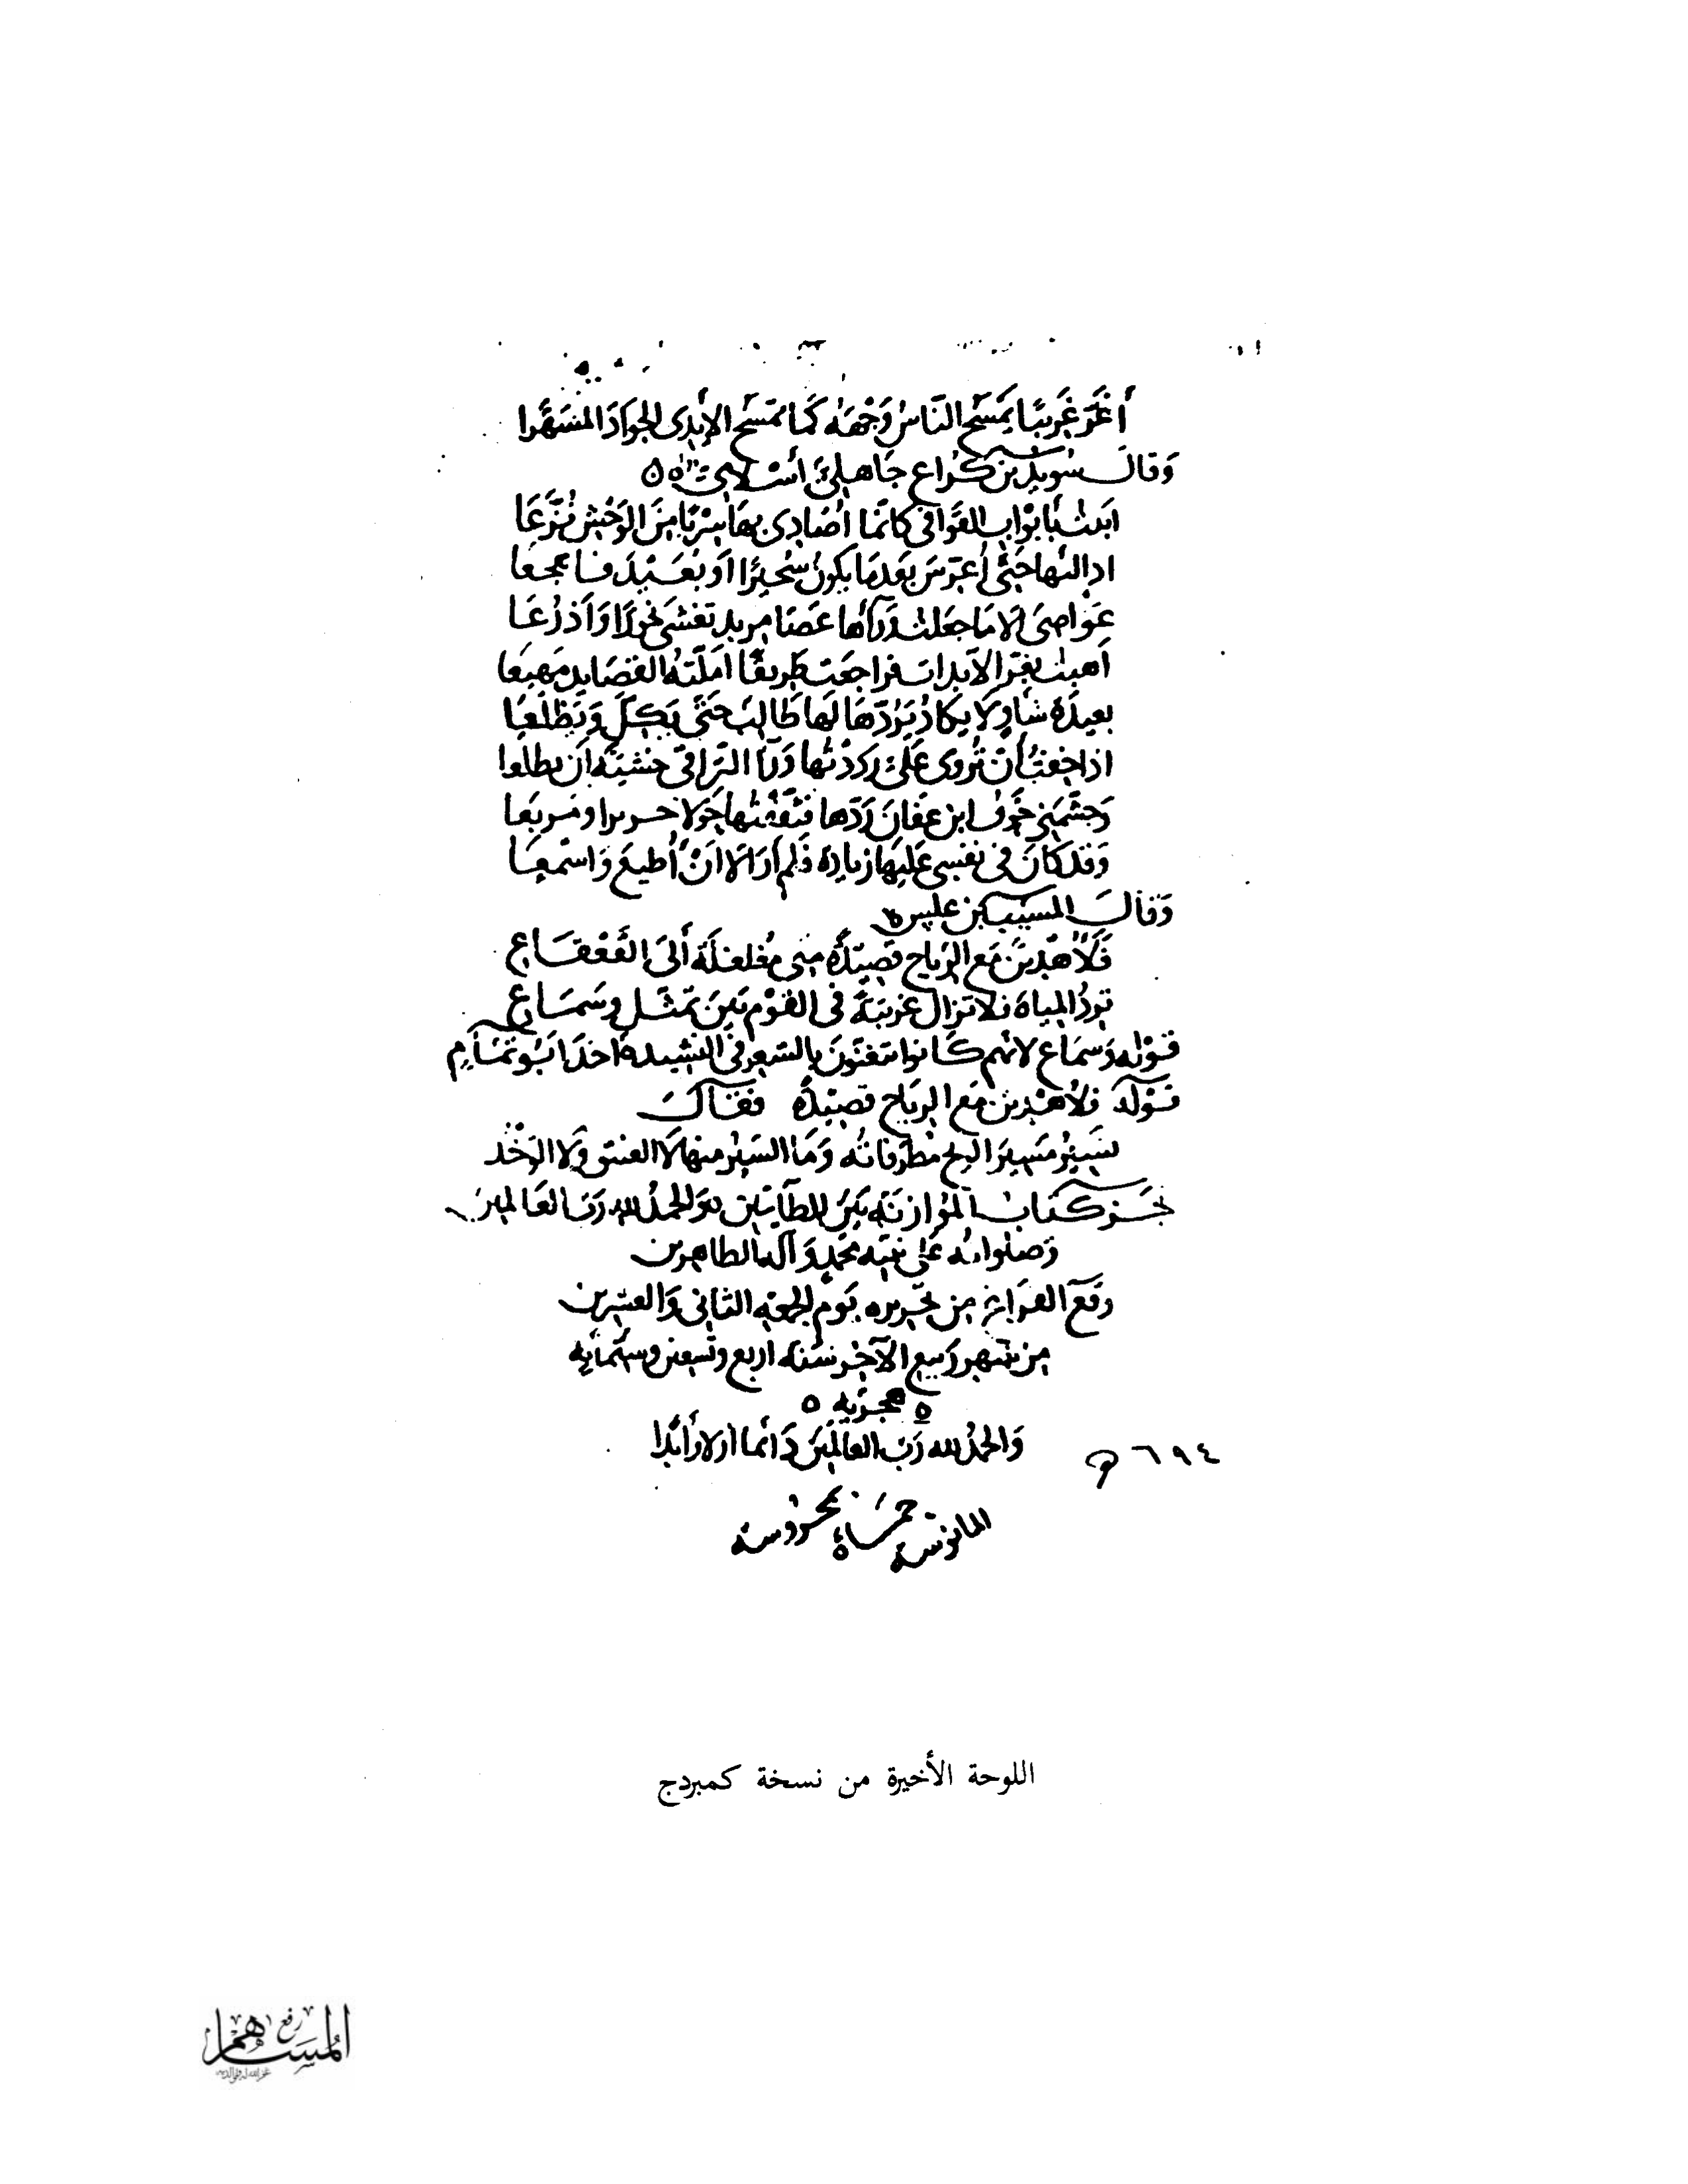 أَغَرَّ غَرِيبًا يَمْسَحُ النَّاسُ وَجْهَهُ كَمَا تمسَحُ الأَيْدِي الجَوَادَ المشَهَّرا
وَقَالَ سُوَيدُ بن كُرَاع جَاهِليّ اسلامي
ابيتُ بأبوابِ القَوَافي كانّمَا أُصَادِي بهَا سِرْبًا مِنَ الوَحْشِ نُزَّعَا
اكالئها حَتَّى أُعرِّسَ بَعدمَا يكونُ سُحَيرًا أَوْ بُعَيْدَ فاهجعا
عَوَاصِيَ الا مَا جعَلتُ وَرَاهَا عَصَا مربد تغشى نحورًا وَأذرُعَا
أهبتُ بغرّ الآبدات فراجعَت طريقًا املّتهُ القصَايد مَهيعَا
بعيدَة شاوٍ لا يكَادُ يَرُدّهَا لَهَا طَالبٌ حَتَّى يَكلَّ وَيَظلَعَا
اذا خِفتُ أنْ تُروى عَليّ رَدَدْتُها وَرَا التراقي خشيَة أَن تطلعا
وَجشَّمَني خَوفُ ابن عَفّانَ رَدّها فثقّفتُها حَولا حريرا ومربعَا
وَقد كَانَ في نفسي عَلَيهَا زيادة فلم أرَ الا انْ أُطيعَ وَاسْمعَا
وَقَالَ المسَيَّب بن علس
فَلأُهدِيَنَّ مَع الرّيَاحِ قَصِيدَةً مِني مُغلغلَةً الَى القَعْقَاعِ
تردُ المياهَ فلا تزال غريبَةً في القوْم بَينَ تمثّل وسَمَاعِ
قوله وَسمَاع لانهم كَانوا يتغنّونَ بالشعر في النشيد وأخذَ ابُو تمّام
قوله فلأهدين مَع الرياح قصيدةً فقال
تَسيرُ مَسيرَ الريح مُطّرفاته وَمَا السَيْر منها لا العنق ولا الوَخْد
نجز كتابُ الموازنَة بَينَ الطَّاييَّين وَالحمدُ لله رَبّ العَالمين
وَصلواته عَلى نبيّه محمَّد وَآله الطاهرين
وقعَ الفرَاغ من تحريره يَوم الجمعة الثاني وَالعشرين
من شهر رَبيع الآخر سَنة اربع وتسعين وستمائة
هجريّة
وَالحمدُ لله رَبّ العالمينَ دَائمًا أَبَدًا
٦٩٤ هـ
بمحروسة
اللوحة الأخيرة من نسخة كمبردج
رفع المساهم
غفر الله له ولوالديه